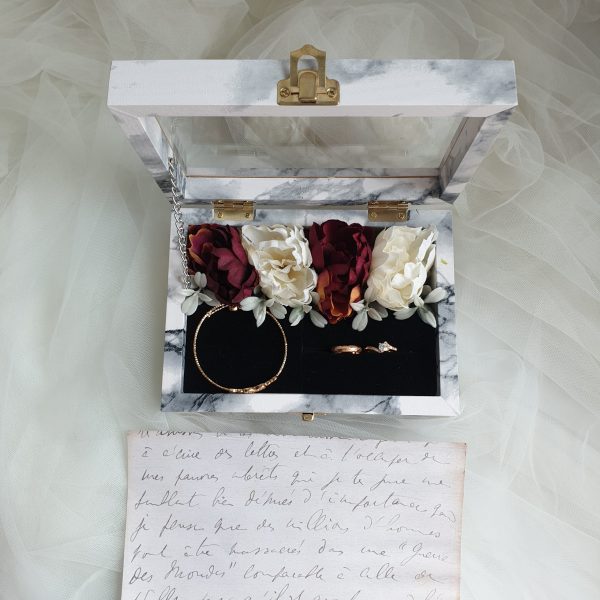 à écrire des lettres et à l'occuper de
mes pauvres intérêts qui je te jure me
semblent bien dénués d'importance quand
je pense que des millions d'hommes
vont être massacrés dans une "Guerre
des Mondes" comparable à celle de